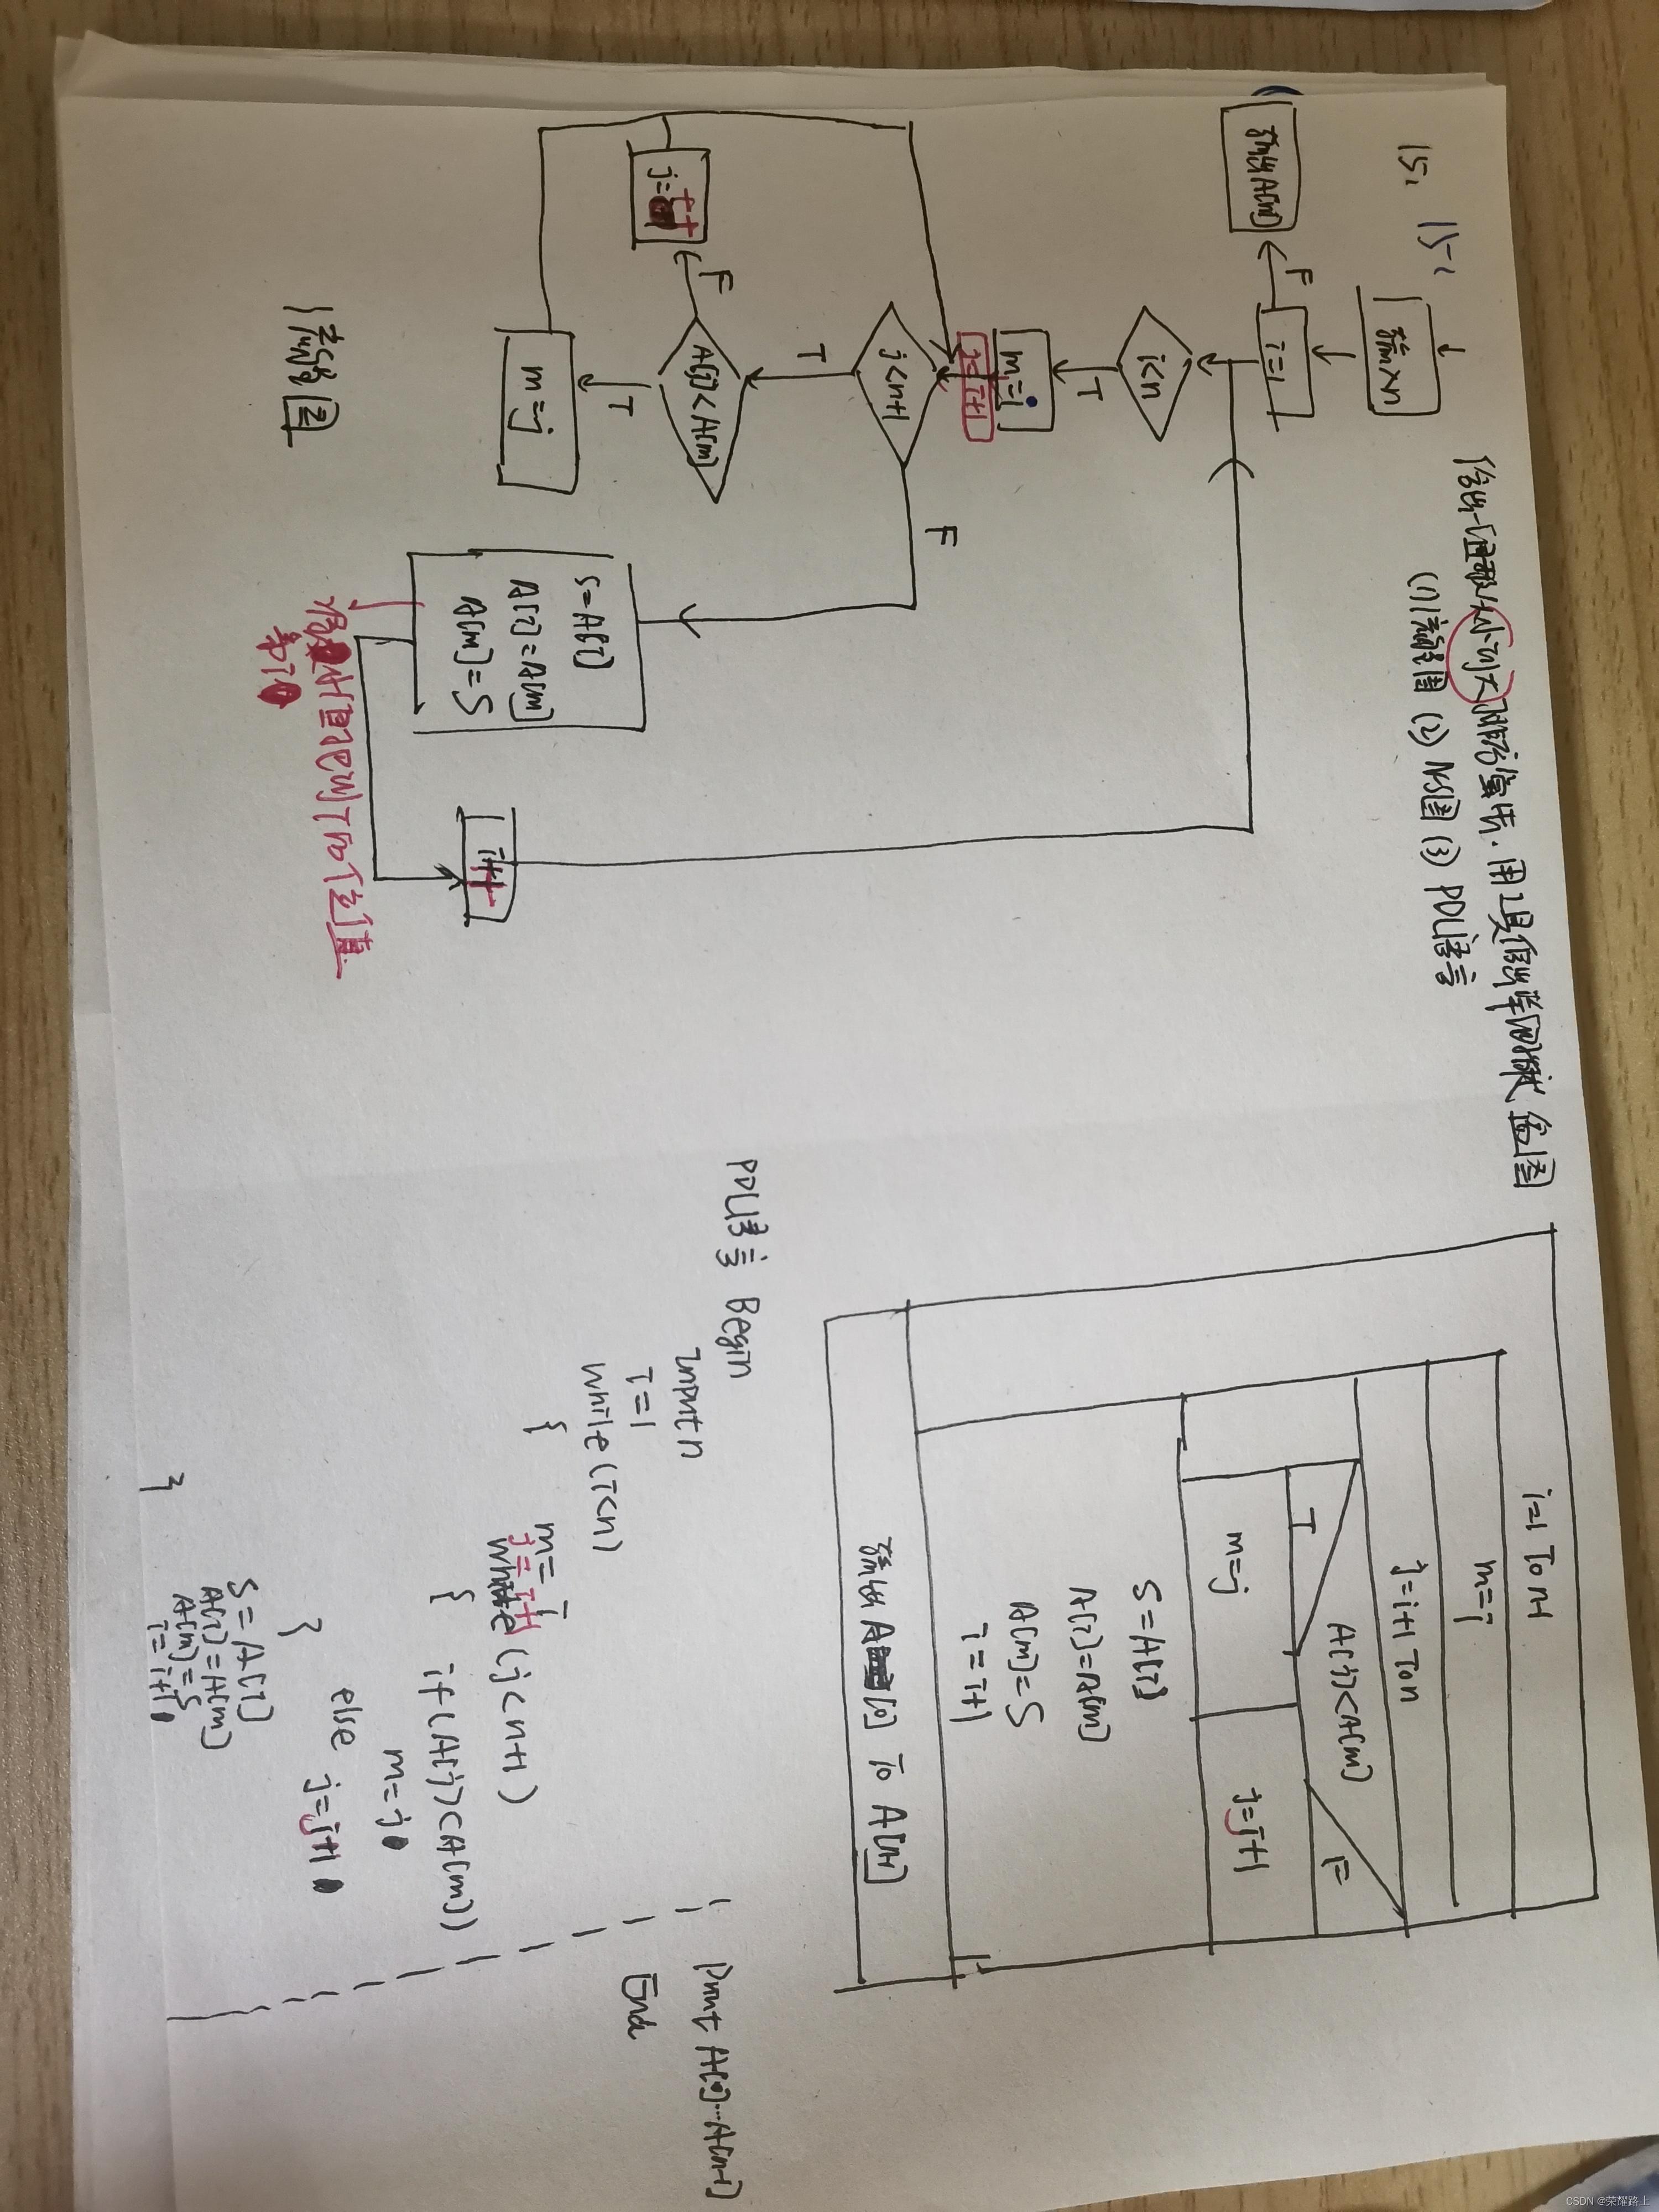 15、 15-1
给出一组数从小到大排序算法,用工具给出详细描述 绘图
(1)流程图 (2) NS图 (3) PDL语言
输入n
i=1
F
输出A[m]
i<n
T
m=i
j=i+1
j<n+1
F
T
A[j]<A[m]
F
j=
++
T
m=j
S=A[i]
A[i]=A[m]
A[m]=S
i++
流程图
i=1 To n-1
m=i
j=i+1 To n
A[j]<A[m]
T
F
m=j
j=j+1
S=A[i]
A[i]=A[m]
A[m]=S
i=i+1
输出A[0] To A[n-1]
PDL语言 Begin
Input n
i=1
while(i<n)
{
m=i
j=i+1
while(j<n+1)
{
if(A[j]<A[m])
m=j
else j=j+1
}
S=A[i]
A[i]=A[m]
A[m]=S
i=i+1
}
Print A[0]…A[n-1]
End
CSDN @荣耀路上